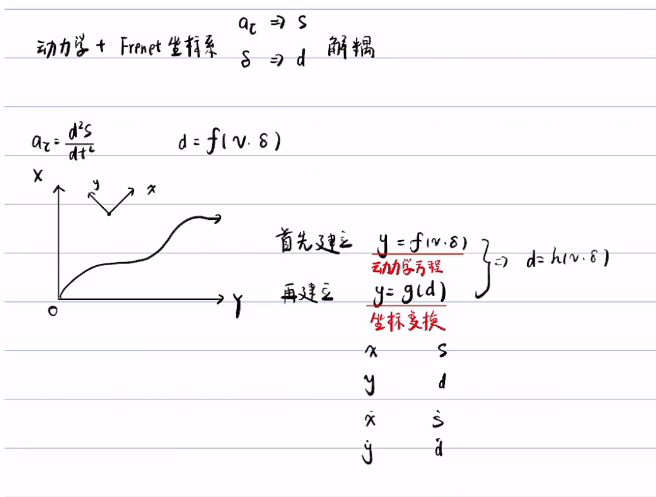 动力学 + Frenet 坐标系 a_τ ⇒ s
δ ⇒ d 解耦
a_τ = d²s/dt² d = f(v.δ)
X
y x
首先建立 y = f(v.δ)
动力学方程
⇒ d = h(v.δ)
再建立 y = g(d)
坐标变换
O Y
x s
y d
ẋ ṡ
ẏ ḋ